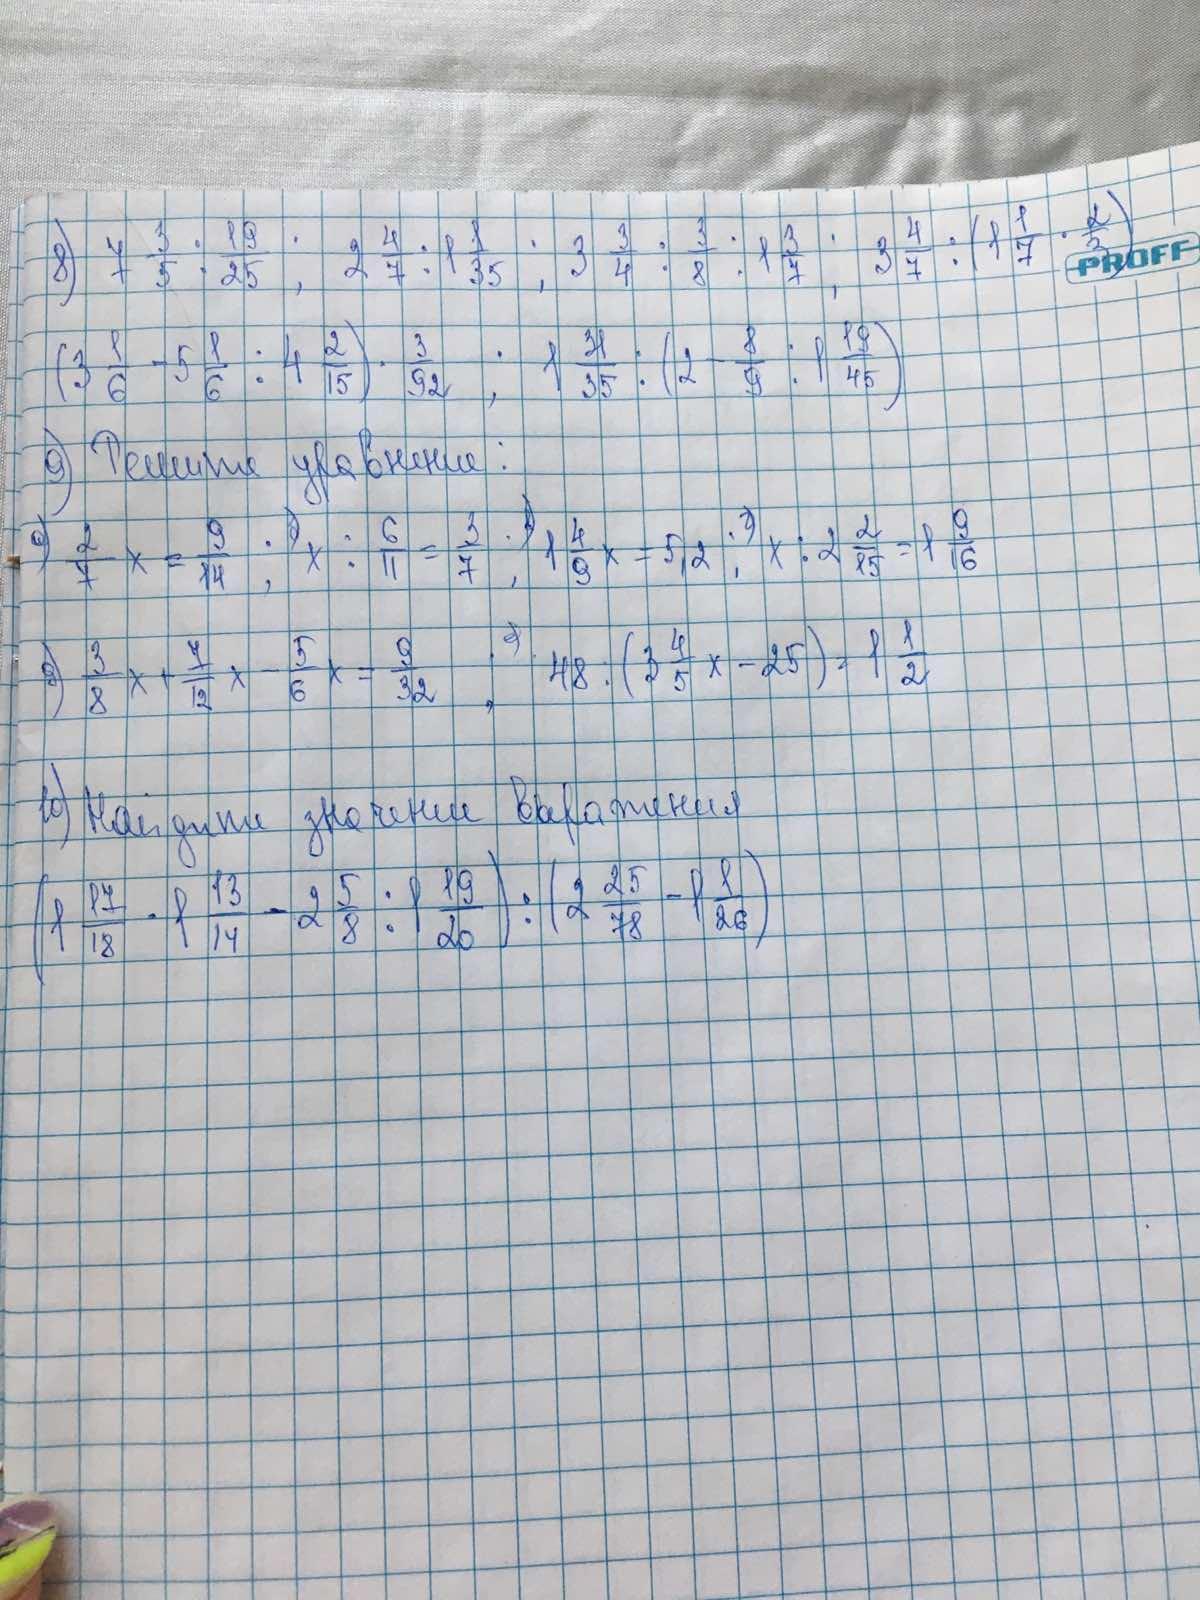 8) 7 3/5 : 19/25 ; 2 4/7 : 1 1/35 ; 3 3/4 : 3/8 : 1 3/7 ; 3 4/7 : (1 1/7 · 2/5)
PROFF
(3 1/6 - 5 1/6 : 4 2/15) · 3/92 ; 1 31/35 : (2 - 8/9 : 1 19/45)
9) Решите уравнение:
2/7 x = 9/14 ; x : 6/11 = 3/7 ; 1 4/9 x = 5,2 ; x : 2 2/15 = 1 9/16
3/8 x + 7/12 x - 5/6 x = 9/32 ; 48 : (3 4/5 x - 25) = 1 1/2
10) Найдите значение выражения
(1 17/18 · 1 13/14 - 2 5/8 : 1 19/20) : (2 25/78 - 1 1/26)